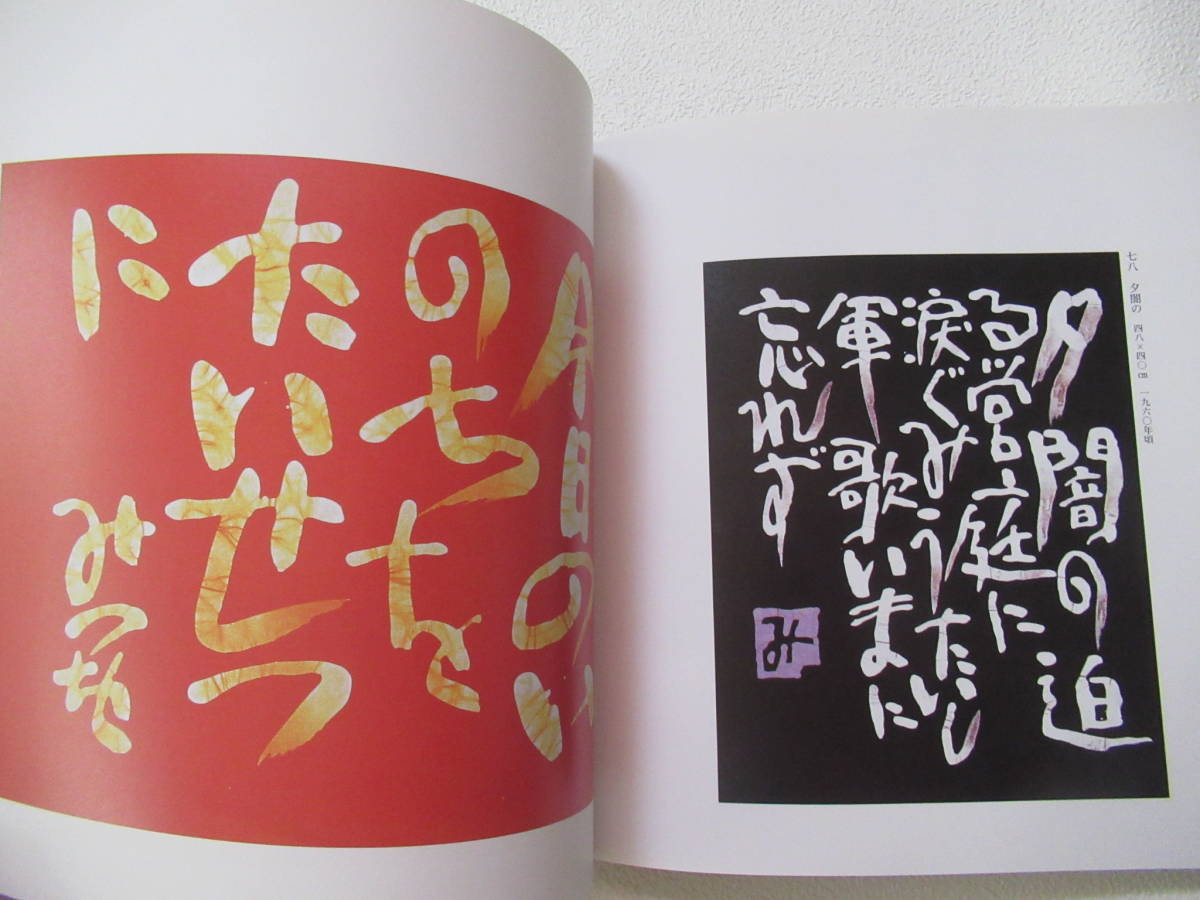 七八 夕闇の 四八×四〇㎝ 一九六〇年頃
夕闇の迫
る営庭に
涙ぐみうたいし
軍歌いまに
忘れず
み
日のい
のちを
たいせつ
に
みつを